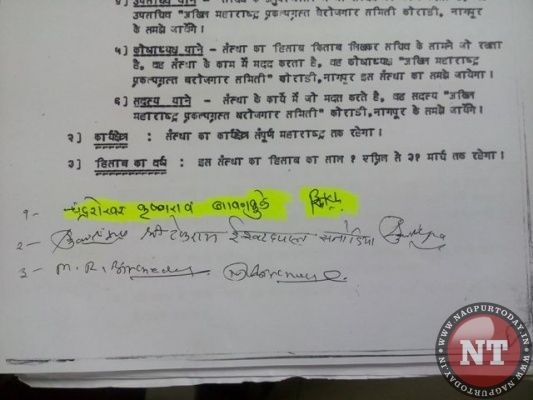 उपसचिव "अखिल महाराष्ट्र प्रकल्पग्रस्त बेरोजगार समिती" कोराडी, नागपूर
के समझे जायेंगे।
५] कोषाध्यक्ष याने - संस्था का हिसाब किताब लिखकर सचिव के सामने जो रखता
है, वह संस्था के काम में मदद करते है, वह कोषाध्यक्ष "अखिल महाराष्ट्र
प्रकल्पग्रस्त बेरोजगार समिती" कोराडी, नागपूर इस संस्था का समझे जायेगा।
६] सदस्य याने - संस्था के कार्य में जो मदत करते है, वह सदस्य "अखिल
महाराष्ट्र प्रकल्पग्रस्त बेरोजगार समिती" कोराडी, नागपूर के समझे जायेंगे।
२] कार्यक्षेत्र : संस्था का कार्यक्षेत्र संपूर्ण महाराष्ट्र तक रहेगा।
३] हिसाब का वर्ष : इस संस्था का हिसाब का साल १ एप्रिल से ३१ मार्च तक रहेगा।
१- चंद्रशेखर कृष्णराव बावनकुळे
२- श्री
३- M. R.
WWW.NAGPURTODAY.IN
NT
WWW.NAGPURTODAY.IN